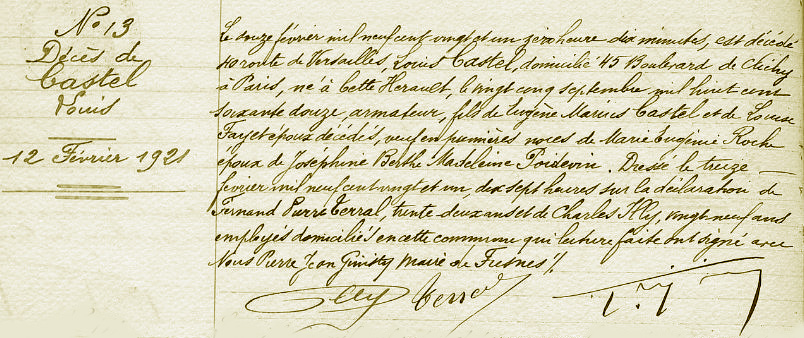 No 13
Décès de
Castel
Louis
12 Février 1921
Le douze février mil neuf cent vingt et un zéro heure dix minutes, est décédé
40 route de Versailles, Louis Castel, domicilié 45 Boulevard de Clichy
à Paris, né à Cette Herault, le vingt cinq septembre mil huit cent
soixante douze, armateur, fils de Eugène Marius Castel et de Louise
Fayet époux décédés, veuf en premières noces de Marie Eugénie Roche
époux de Joséphine Berthe Madeleine Poidevin. Dressé le treize —
février mil neuf cent vingt et un, dix sept heures sur la déclaration de
Fernand Pierre Terral, trente deux ans et de Charles Illy, vingt neuf ans
employés domiciliés en cette commune qui lecture faite ont signé avec
Nous Pierre Jean Ginisty Maire de Fresnes ./.
Illy Terral